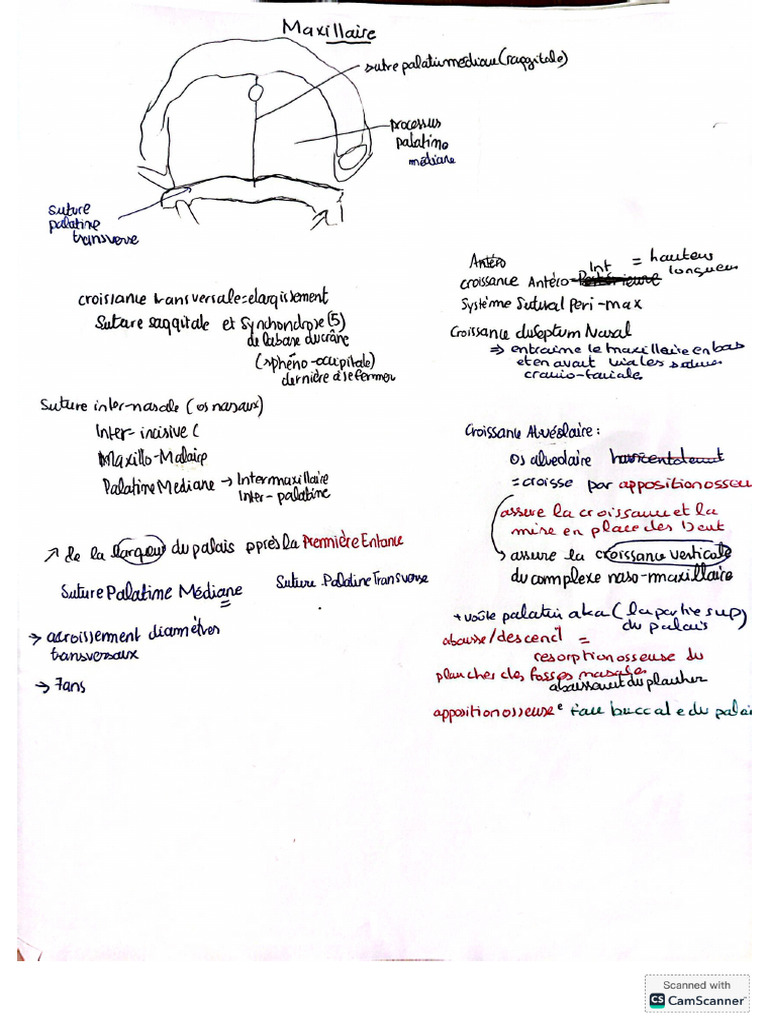 Maxillaire
suture palatine médiane (saggitale)
processus
palatine
médiane
suture
palatine
transverse
croissance transversale = elargissement
Suture saggitale et Synchondrose (5)
de la base du crâne
(sphéno-occipitale)
dernière à se fermer
Suture inter-nasale (os nasaux)
Inter-incisive (
Maxillo-Malaire
Palatine Mediane → Intermaxillaire
Inter-palatine
↗ de la largeur du palais après la Première Enfance
Suture Palatine Médiane
Suture Palatine Transverse
→ accroissement diamètres
transversaux
→ 7ans
Antéro
croissance Antéro-Postérieure Int = hauteur
longueur
Système Sutural Peri-max
Croissance du Septum Nasal
⇒ entraine le maxillaire en bas
et en avant via les sutures
cranio-faciale
Croissance Alvéolaire :
os alveolaire horizontalement
= croise par apposition osseu
assure la croissance et la
mise en place des Dent
→ assure la croissance verticale
du complexe naso-maxillaire
+ voûte palatin aka (la partie sup)
du palais
abaisse/descend =
resorption osseuse du
plancher des fosses nasale
abaissement du plancher
apposition osseuse face buccale du palais
Scanned with
CS CamScanner